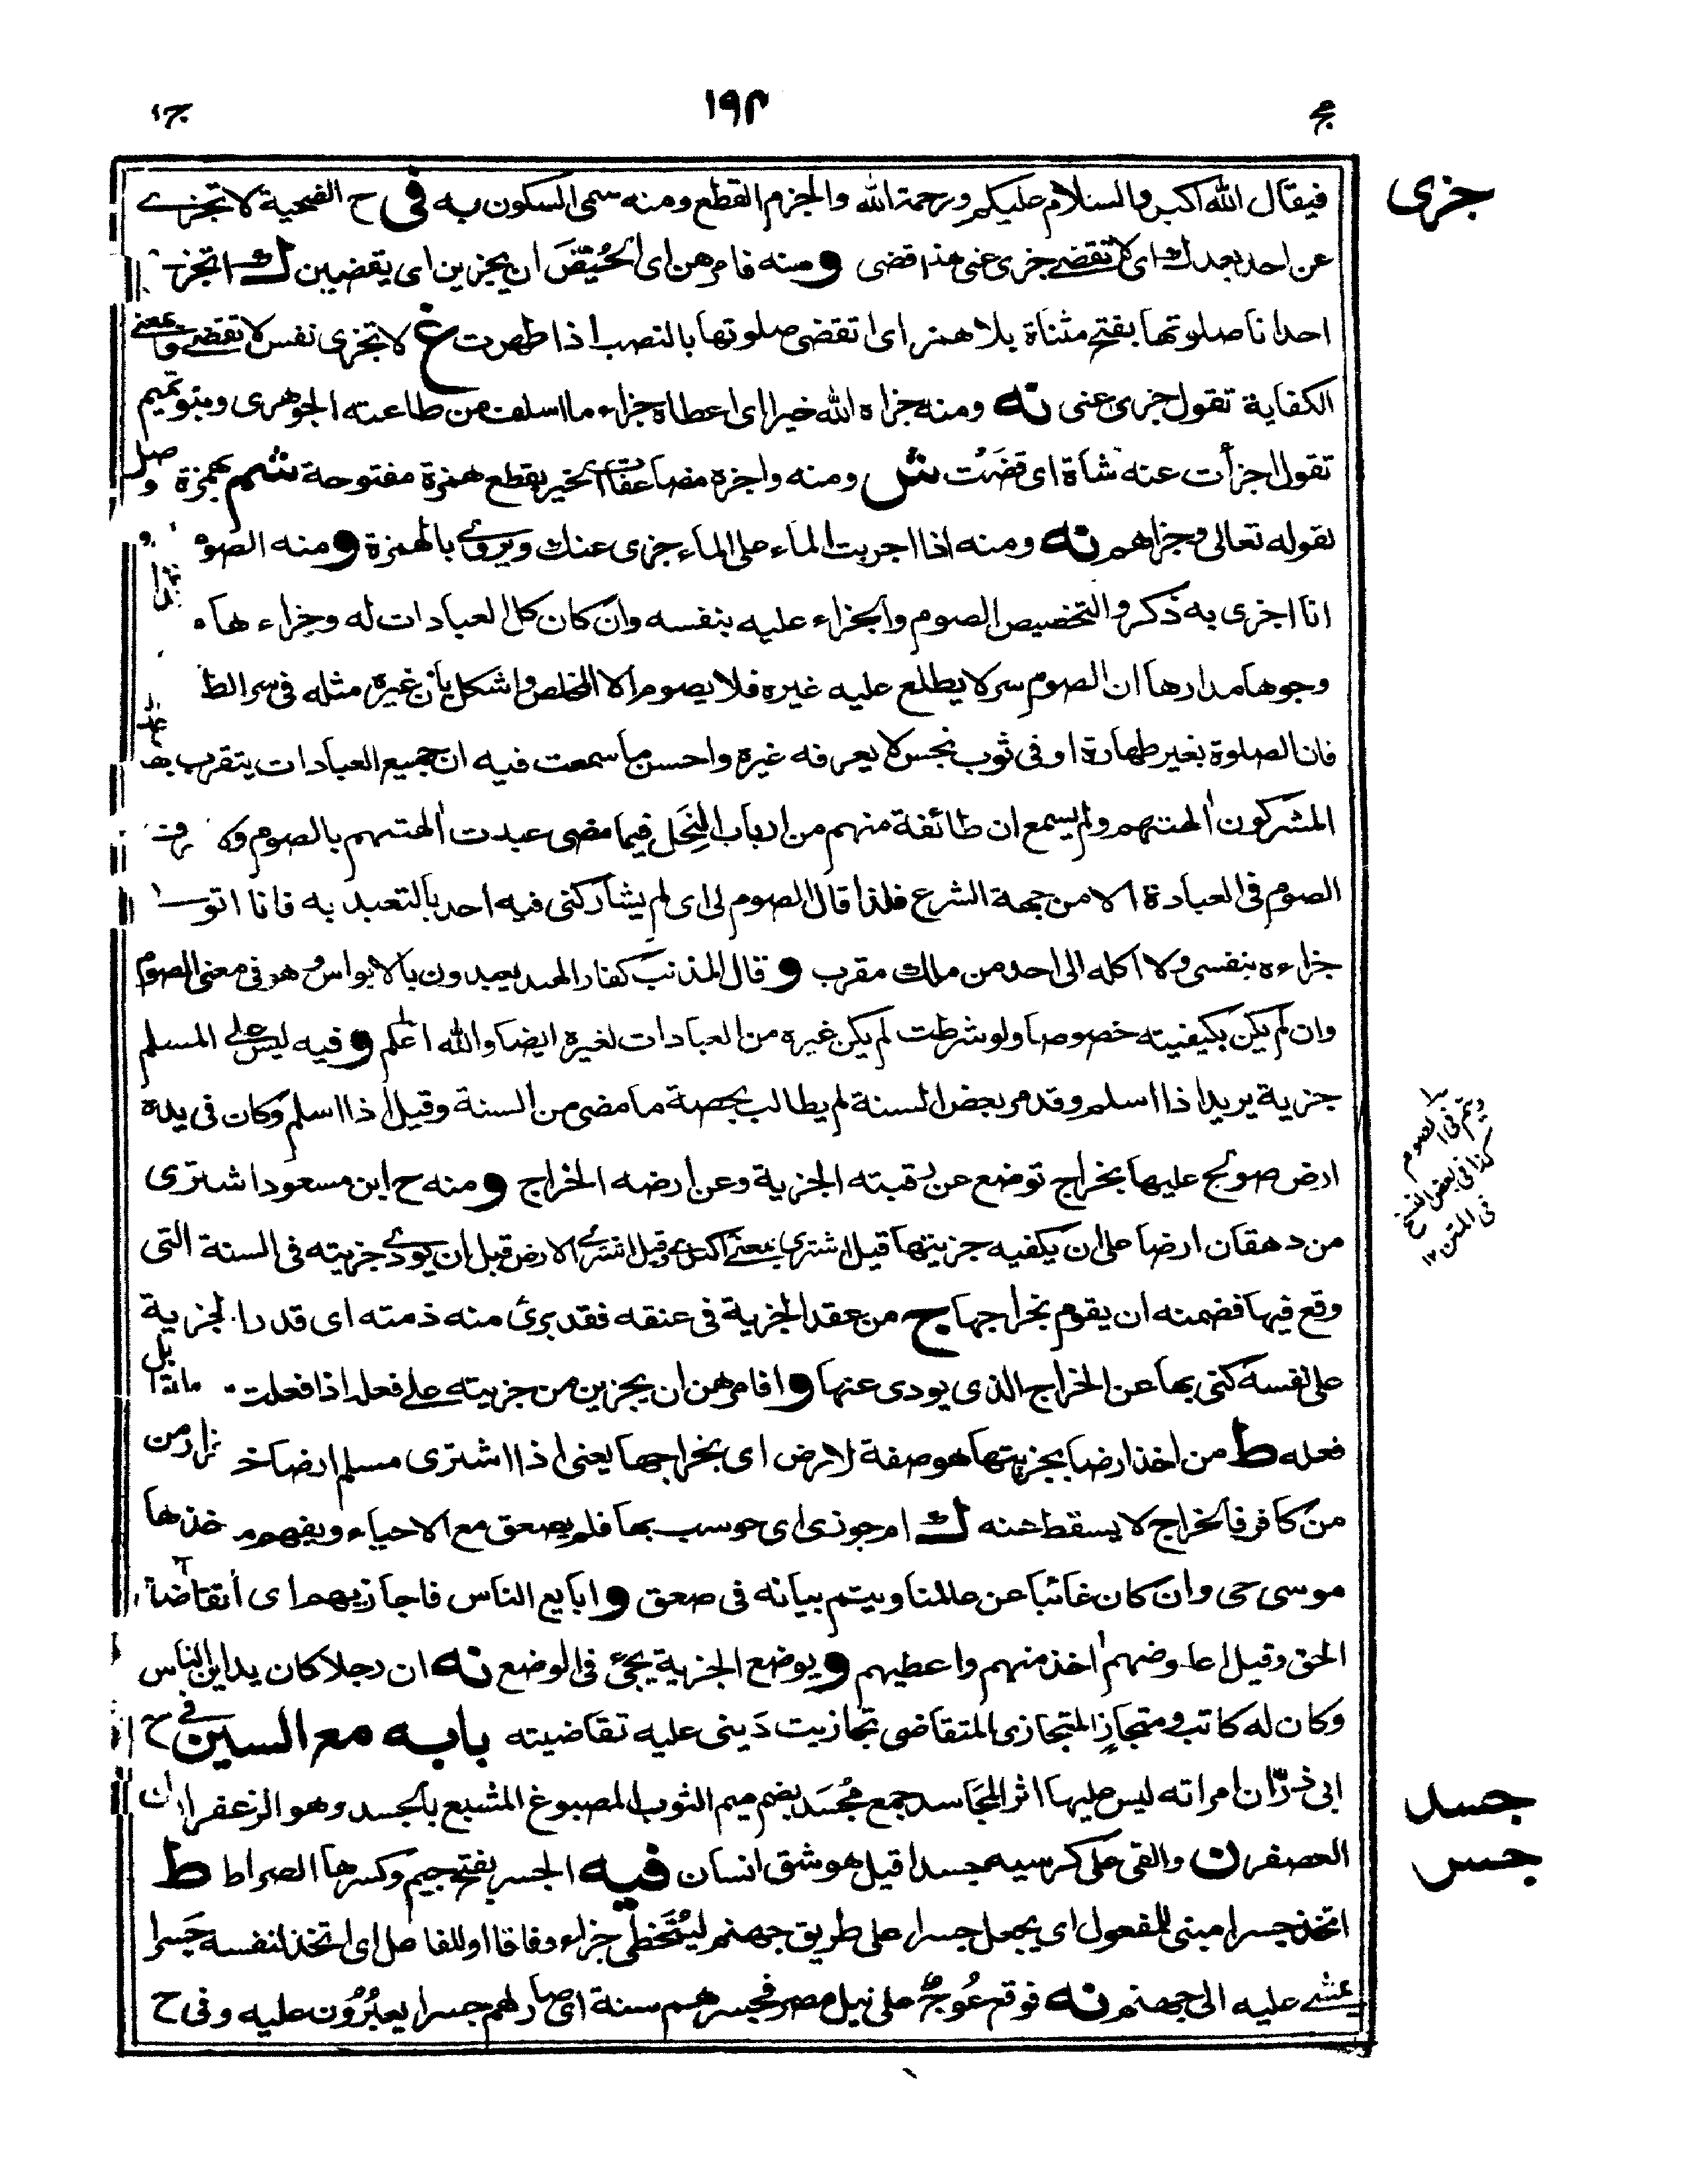 ج١ ١٩٤ مج
جزى
فيقال الله اكبر والسلام عليكم ورحمة الله والجزم القطع ومنه سمى السكون به فى ح الضحية لا تجزى
عن احد بعدك اى لا تقضى جزى عنى هذا قضى و منه فامرهن اى الحُيَّض ان يجزين اى يقضين ك اتجزى
احدانا صلوتها بفتح مثناة بلا همز اى اتقضى صلوتها بالنصب اذا طهرت غ لا تجزى نفس لا تقضى ومعنى
الكفاية تقول جزى عنى نه ومنه جزاه الله خيرا اى اعطاه جزاء ما اسلف من طاعته الجوهرى وبنو تميم
تقول اجزأت عنه شاة اى قضَتْ ش ومنه واجزه مضاعفات الخير بقطع همزة مفتوحة شم بهمزة وصل
لقوله تعالى وجزاهم نه ومنه اذا اجريت الماء على الماء جزى عنك ويروى بالهمزة و منه الصوم
انا اجزى به ذكروا لتخصيص الصوم والجزاء عليه بنفسه وان كان كل العبادات له وجزاءها
وجوها مدارها ان الصوم سر لا يطلع عليه غيره فلا يصوم الا المخلص واشكل بان غيره مثله فى سر الط
فان الصلوة بغير طهارة او فى ثوب نجس لا يعرفه غيره واحسن ما سمعت فيه ان جميع العبادات يتقرب بها
المشركون الهتهم ولم يسمع ان طائفة منهم من ارباب النِحَل فيما مضى عبدت الهتهم بالصوم
الصوم فى العبادة الا من جهة الشرع فلذا قال الصوم لى اى لم يشاركنى فيه احد بالتعبد به فانا اتو
جزاءه بنفسى ولا اكله الى احد من ملك مقرب و قال المذنب كفار الهند يعبدون بالابواس وهو فى معنى الصوم
وان لم يكن بكيفيته خصوصا ولو شرطت لم يكن غيره من العبادات لغيره ايضا والله اعلم و فيه ليس على المسلم
جزية يريد اذا اسلم وقد مر بعض السنة لم يطالب بحصة ما مضى من السنة وقيل اذا اسلم وكان فى يده
ويتم فى الصوم
كذا فى بعض النسخ
فى المتن ١٢
ارض صولح عليها بخراج توضع عن رقبته الجزية وعن ارضه الخراج و منه ح ابن مسعود اشترى
من دهقان ارضا على ان يكفيه جزيتها قيل اشترى بمعنى اكترى وقيل اشترى الارض قبل ان يؤدى جزيته فى السنة التى
وقع فيها فضمنه ان يقوم بخراجها ج من عقد الجزية فى عنقه فقد برئ منه ذمته اى قدر الجزية
على نفسه كنى بها عن الخراج الذى يودى عنها و افامرهن ان يجزين من جزيته على فعله اذا فعلت
فعله ط من اخذ ارضا بجزيتها هو صفة لارض اى بخراجها يعنى اذا اشترى مسلم ارضا خراج من
من كافر فالخراج لا يسقط عنه ك ام جوزى اى حوسب بها فلم يصعق مع الاحياء ويفهم
موسى حى وان كان غائبا عن عالمنا ويتم بيانه فى صعق و ابايع الناس فاجازيهم اى أتقاضا
الحق وقيل اعاوضهم اخذ منهم واعطيهم و يوضع الجزية يجئ فى الوضع نه ان رجلا كان يداين الناس
وكان له كاتب ومتجازٍ المتجازى المتقاضى تجازيت دَينى عليه تقاضيته بابه مع السين فى ح
جسد
ابى ذرّ ان امراته ليس عليها اثر المَجَاسد جمع مُجْسَد بضم ميم الثوب المصبوغ المشبع بالجسد وهو الزعفران
جسر
العصفر ن والقى على كرسيه جسدا قيل هو شق انسان فيه الجسر بفتح جيم وكسرها الصراط ط
اتخذ جسرا مبنى للمفعول اى يجعل جسرا على طريق جهنم ليُتَخطى جزاء وفاقا او للفاعل اى اتخذ لنفسه جسرا
يمشى عليه الى جهنم نه فوقع عُوج على نيل مصر فجسرهم سنة اى صار لهم جسرا يعبُرُون عليه وفى ح